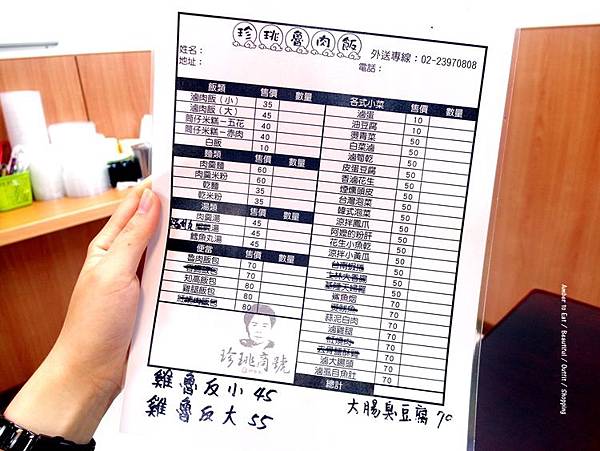 珍珧魯肉飯
姓名：
外送專線：02-23970808
地址：
電話：
飯類 售價 數量
滷肉飯（小） 35
滷肉飯（大） 45
筒仔米糕－五花 40
筒仔米糕－赤肉 40
白飯 10
麵類 售價 數量
肉羹麵 60
肉羹米粉 60
乾麵 35
乾米粉 35
湯類 售價 數量
肉羹湯 45
湯 45
鱈魚丸湯 45
便當 售價 數量
魯肉飯包 70
70
知高飯包 80
雞腿飯包 80
80
珍珧商號
各式小菜 售價 數量
滷蛋 10
油豆腐 10
燙青菜 50
白菜滷 50
滷筍乾 50
皮蛋豆腐 50
香滷花生 50
煙燻頭皮 50
台灣泡菜 50
韓式泡菜 50
涼拌鳳爪 50
阿嬤的粉肝 50
花生小魚乾 50
涼拌小黃瓜 50
50
50
50
鯊魚烟 70
70
蒜泥白肉 70
滷雞腿 70
70
70
滷大腸頭 70
滷虱目魚肚 70
總計
雞魯反小 45
雞魯反大 55
大腸臭豆腐 70
Amber to Eat / Beautiful / Outfit / Shopping